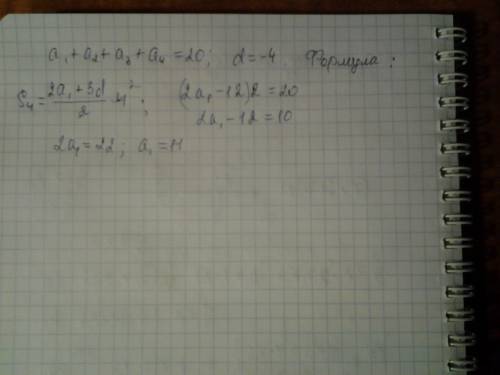 a₁ + a₂ + a₃ + a₄ = 20; d = -4. Формула:
S₄ = (2a₁ + 3d)/2 · 4²; (2a₁ - 12)2 = 20
2a₁ - 12 = 10
2a₁ = 22; a₁ = 11